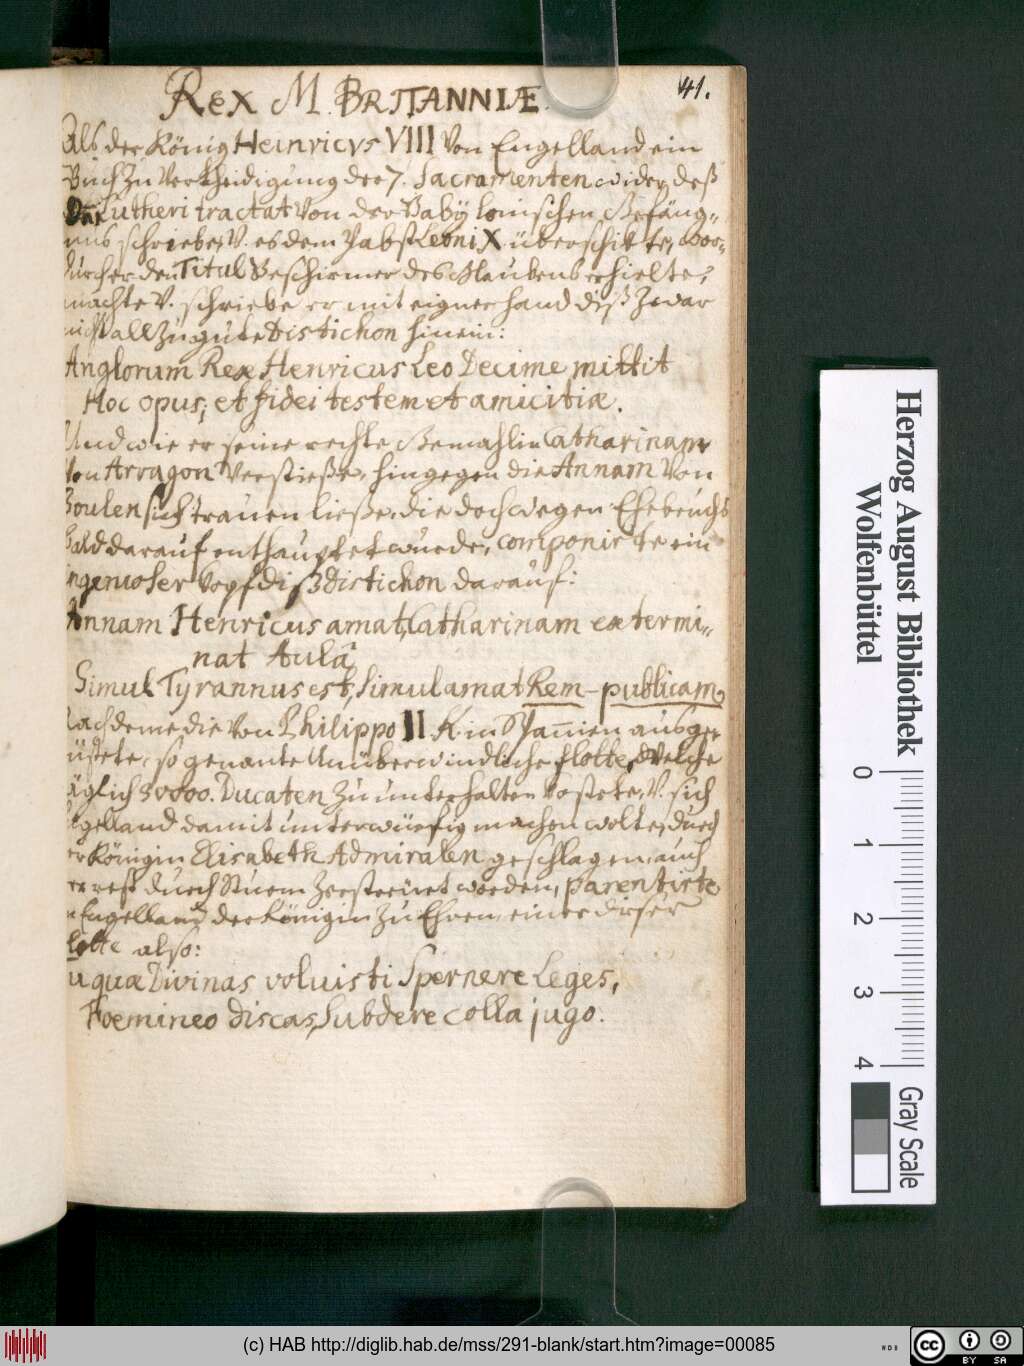 41.
REX M. BRITANNIÆ.
Als der König Heinricvs VIII von Engelland ein
Buch zu Vertheidigung der 7. Sacramenten wider deß
Lutheri tractat von der Babÿlonischen Gefäng-
nus schriebe, V. es dem Pabst Leoni X. überschikte, wor-
durch er den Titul Beschirmer des Glaubens erhielte,
machte V. schriebe er mit eigner hand diß zwar
nicht allzu gute Distichon hinein:
Anglorum Rex Henricus Leo Decime mittit
Hoc opus, et fidei testem et amicitiæ.
Und wie er seine rechte Gemahlin Catharinam
von Arragon verstieße, hingegen die Annam von
Boulen sich trauen ließe, die doch wegen Ehebruchs
bald darauf enthauptet wurde, componirte ein
ingenioser Kopf diß distichon darauf:
Annam Henricus amat, Catharinam extermi-
nat Aulâ,
Simul Tyrannus est, simul amat Rem-publicam.
Nachdeme die von Philippo II. K. in Spanien ausge-
rüstete, so genante Unüberwindliche flotte, welche
täglich 30000. Ducaten zu unterhalten kostete, V. sich
Engelland damit unterwürfig machen wolte, durch
der Königin Elisabeth Admiralen geschlagen, auch
der rest durch Sturm zerstreuet worden, parentirte
in Engelland der Königin zu Ehren einer dieser
flotte also:
Tu quæ Divinas voluisti spernere leges,
Foemineo discas, subdere colla jugo.
Herzog August Bibliothek
Wolfenbüttel
0 1 2 3 4
Gray Scale
(c) HAB http://diglib.hab.de/mss/291-blank/start.htm?image=00085
WDB
cc BY SA